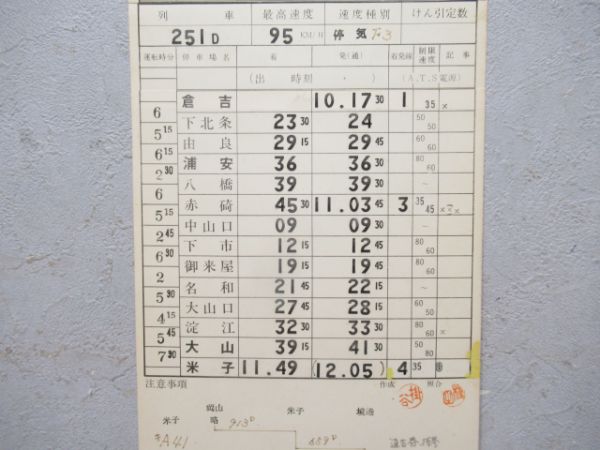 列 車 最高速度 速度種別 けん引定数
251D 95KM/H 停気
運転時分 停車場名 着 発(通) 着発線 制限速度 記事
(出 時刻 ・ ) (A.T.S電源)
倉吉 10.17 30 1 35 ×
6
下北条 23 30 24 50 50
5 15
由良 29 15 29 45 60 60
6 15
浦安 36 36 30 80 60
2 30
八橋 39 39 30 ~
6
赤碕 45 30 11.03 45 3 35 45
5 15
中山口 09 09 30 ~
2 45
下市 12 15 12 45 80 60
6 30
御来屋 19 15 19 45 80 60
2
名和 21 45 22 15 ~
5 30
大山口 27 45 28 15 60 50
4 15
淀江 32 30 33 30 80 60 ×
5 45
大山 39 15 41 30 50 80
7 30
米子 11.49 (12.05) 4 35
注意事項 作成 照合
岡山 米子 境港
米子 略 913D 659D
A41